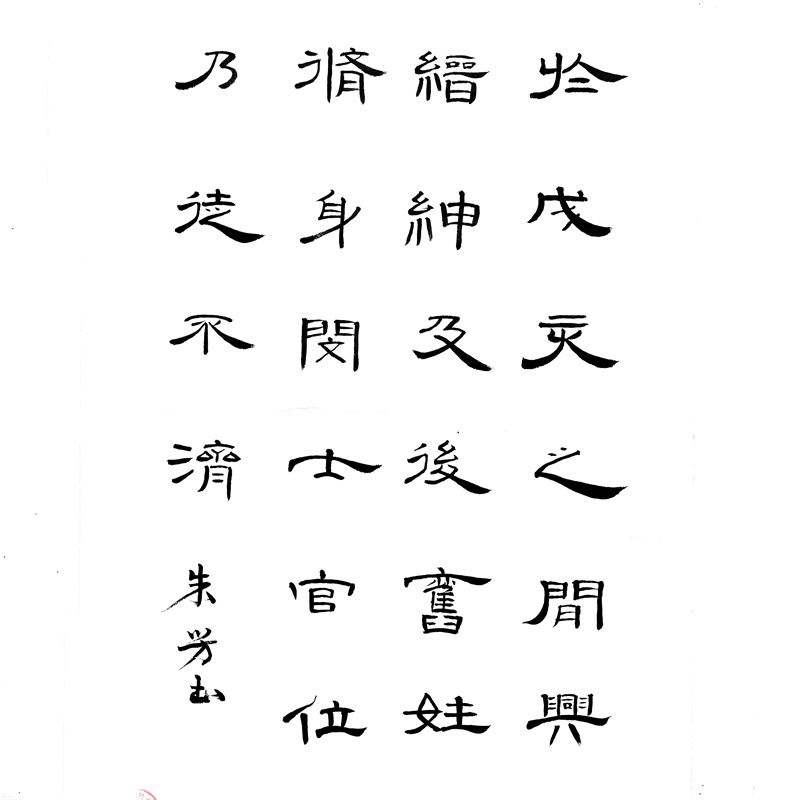 於戌亥之閒興
縉紳及後舊姓
脩身閔士官位
乃徒不濟
朱芳书